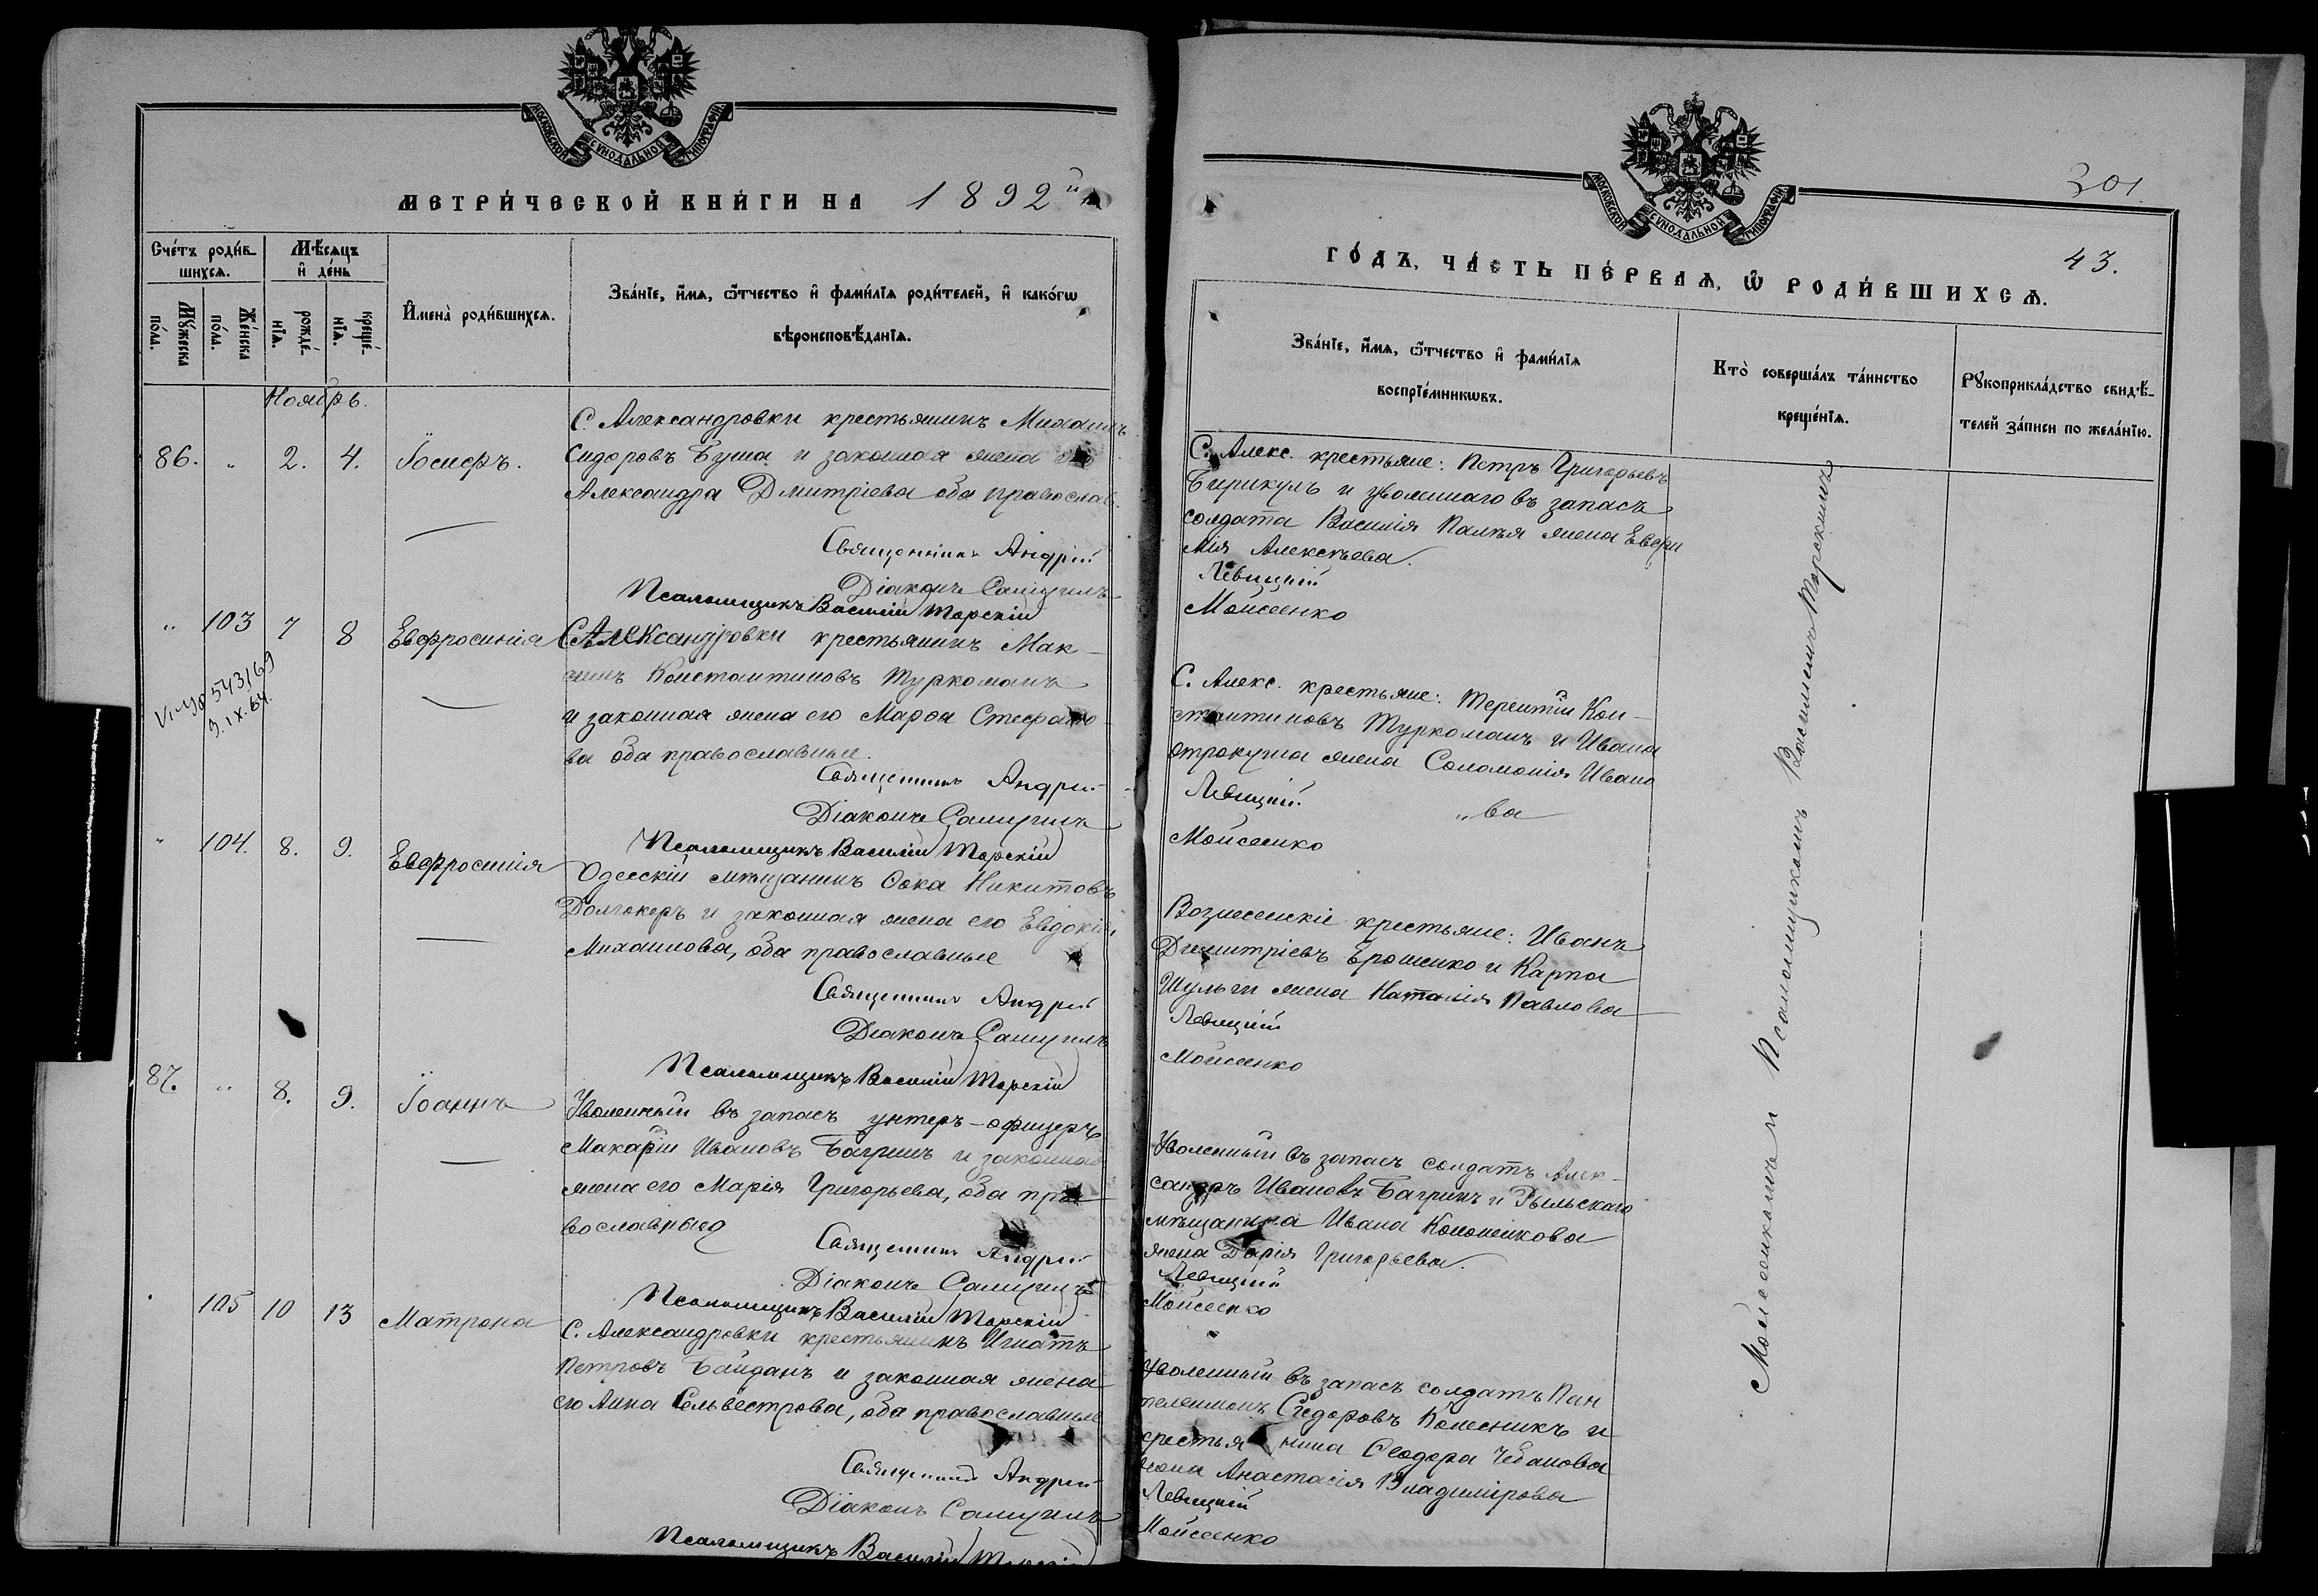 МОСКОВСКОЙ СѴНОДАЛЬНОЙ ТИПОГРАФІИ
МЕТРИ́ЧЕСКОЙ КНИ́ГИ НА 1892й
Сче́тъ роди́в-
шихся.
Мѣ́сяцъ
и҆ де́нь
Мꙋ́жеска
по́ла.
Же́нска
по́ла.
рожде́-
нїѧ.
креще́-
нїѧ.
И҆мена̀ роди́вшихсѧ.
Зва́нїе, и҆́мѧ, ѻ҆́тчество и҆ фами́лїѧ роди́телей, и҆ како́гѡ
вѣроисповѣ́данїѧ.
Ноябрь.
86. " 2. 4. Іосифъ.
С. Александровки крестьянинъ Михаилъ
Сидоровъ Буша и законная жена его
Александра Дмитріева оба православ.
Священникъ Андрей
Діаконъ Самуилъ
Псаломщикъ Василій Торскій
" 103 7 8 Евфросинія
С. Александровки крестьянинъ Мак-
симъ Константиновъ Туркоманъ
и законная жена его Марѳа Стефано-
ва оба православные.
543/69
9.IX.64.
Священникъ Андрей
Діаконъ Самуилъ
Псаломщикъ Василій Торскій
" 104. 8. 9. Евфросинія
Одесскій мѣщанинъ Ѳока Никитовъ
Долгокеръ и законная жена его Евдокія
Михаилова, оба православные
Священникъ Андрей
Діаконъ Самуилъ
Псаломщикъ Василій Торскій
87. " 8. 9. Іоаннъ
Уволенный въ запасъ унтеръ-офицеръ
Макарій Ивановъ Багринъ и законная
жена его Марія Григорьева, оба пра-
вославные
Священникъ Андрей
Діаконъ Самуилъ
Псаломщикъ Василій Торскій
105 10 13 Матрона
С. Александровки крестьянинъ Игнатъ
Петровъ Байданъ и законная жена
его Анна Сельвестрова, оба православные
Священникъ Андрей
Діаконъ Самуилъ
Псаломщикъ Василій Торскій
МОСКОВСКОЙ СѴНОДАЛЬНОЙ ТИПОГРАФІИ
301.
43.
ГО́ДЪ, ЧА́СТЬ ПЕ́РВАѦ, Ѡ҆ РОДИ́ВШИХСѦ.
Зва́нїе, и҆́мѧ, ѻ҆́тчество и҆ фами́лїѧ
воспрїе́мникѡвъ.
Кто̀ соверша́лъ та́инство
креще́нїѧ.
Рꙋкоприкла́дство свидѣ́-
телей за́писи по жела́нїю.
С. Алекс. крестьяне: Петръ Григорьевъ
Бирикулъ и уволеннаго въ запасъ
солдата Василія Палѣя жена Евфи
мія Алексѣева.
Левицкій
Мойсеенко
С. Алекс. крестьяне: Терентій Кон-
стантиновъ Туркоманъ и Ивана
жена Соломонія Ивано
"ва
Левицкій
Мойсеенко
Вознесенскіе крестьяне: Иванъ
Димитріевъ Ерошенко и Карпа
Шульги жена Наталія Павлова
Левицкій
Мойсеенко
Уволенный въ запасъ солдатъ Алек-
сандръ Ивановъ Багринъ и Рыльскаго
мѣщанина Ивана Кононенкова
жена Дарія Григорьева.
Левицкій
Мойсеенко
Уволенный въ запасъ солдатъ Пан
телеимонъ Сидоровъ Колесникъ и
крестьянина Ѳеодора Чебанова
жена Анастасія Владимірова
Левицкій
Мойсеенко
Мойсеенкомъ и Псаломщикомъ Василіемъ Торскимъ